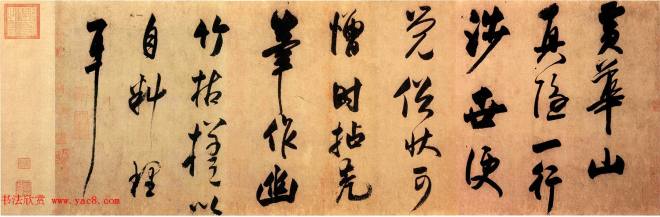 黃華山
真隱一行
涉世便
覺俗狀可
憎時拈禿
筆作幽
竹枯槎以
自料理
耳
书法欣赏 www.yac8.com